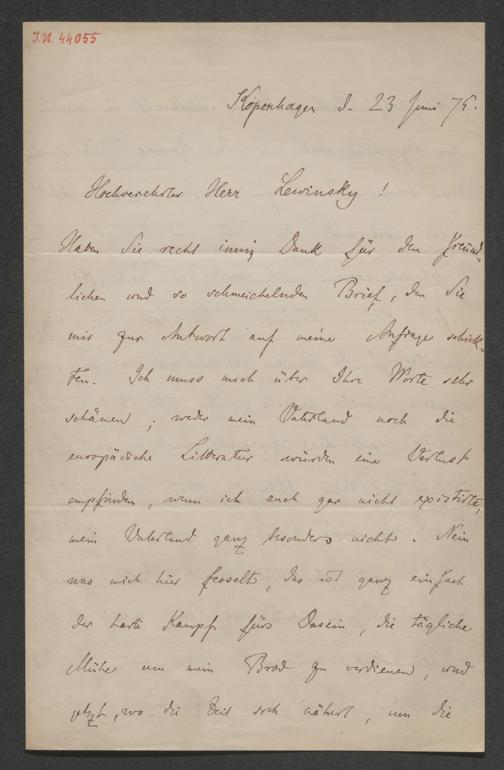 I.N. 44055
Kopenhagen d. 23 Juni 75.
Hochverehrter Herr Lewinsky!
Haben Sie recht innig Dank für den freund-
lichen und so schmeichelnden Brief, den Sie
mir zur Antwort auf meine Anfrage schick-
ten. Ich muss mich über Ihre Worte sehr
schämen; weder mein Vaterland noch die
europäische Litteratur würden eine Verlust
empfinden, wenn ich auch gar nicht existirte,
mein Vaterland ganz besonders nicht. Nein
was mich hier fesselt, das ist ganz einfach
der harte Kampf fürs Dasein, die tägliche
Mühe um mein Brod zu verdienen, und
jetzt, wo die Zeit sich nähert, um die